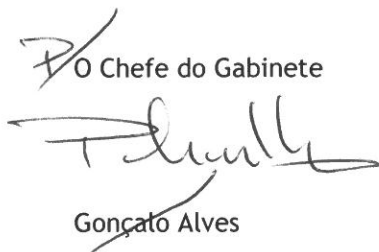 P/O Chefe do Gabinete
Gonçalo Alves